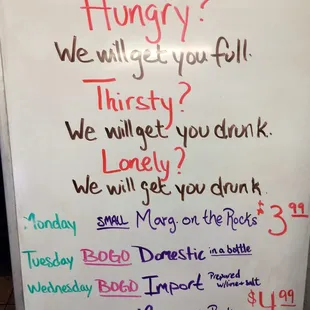 Hungry?
We will get you full.
Thirsty?
We will get you drunk.
Lonely?
We will get you drunk.
Monday SMALL Marg. on the Rocks $3.99
Tuesday BOGO Domestic in a bottle
Wednesday BOGO Import Prepared w/lime & salt
$4.99